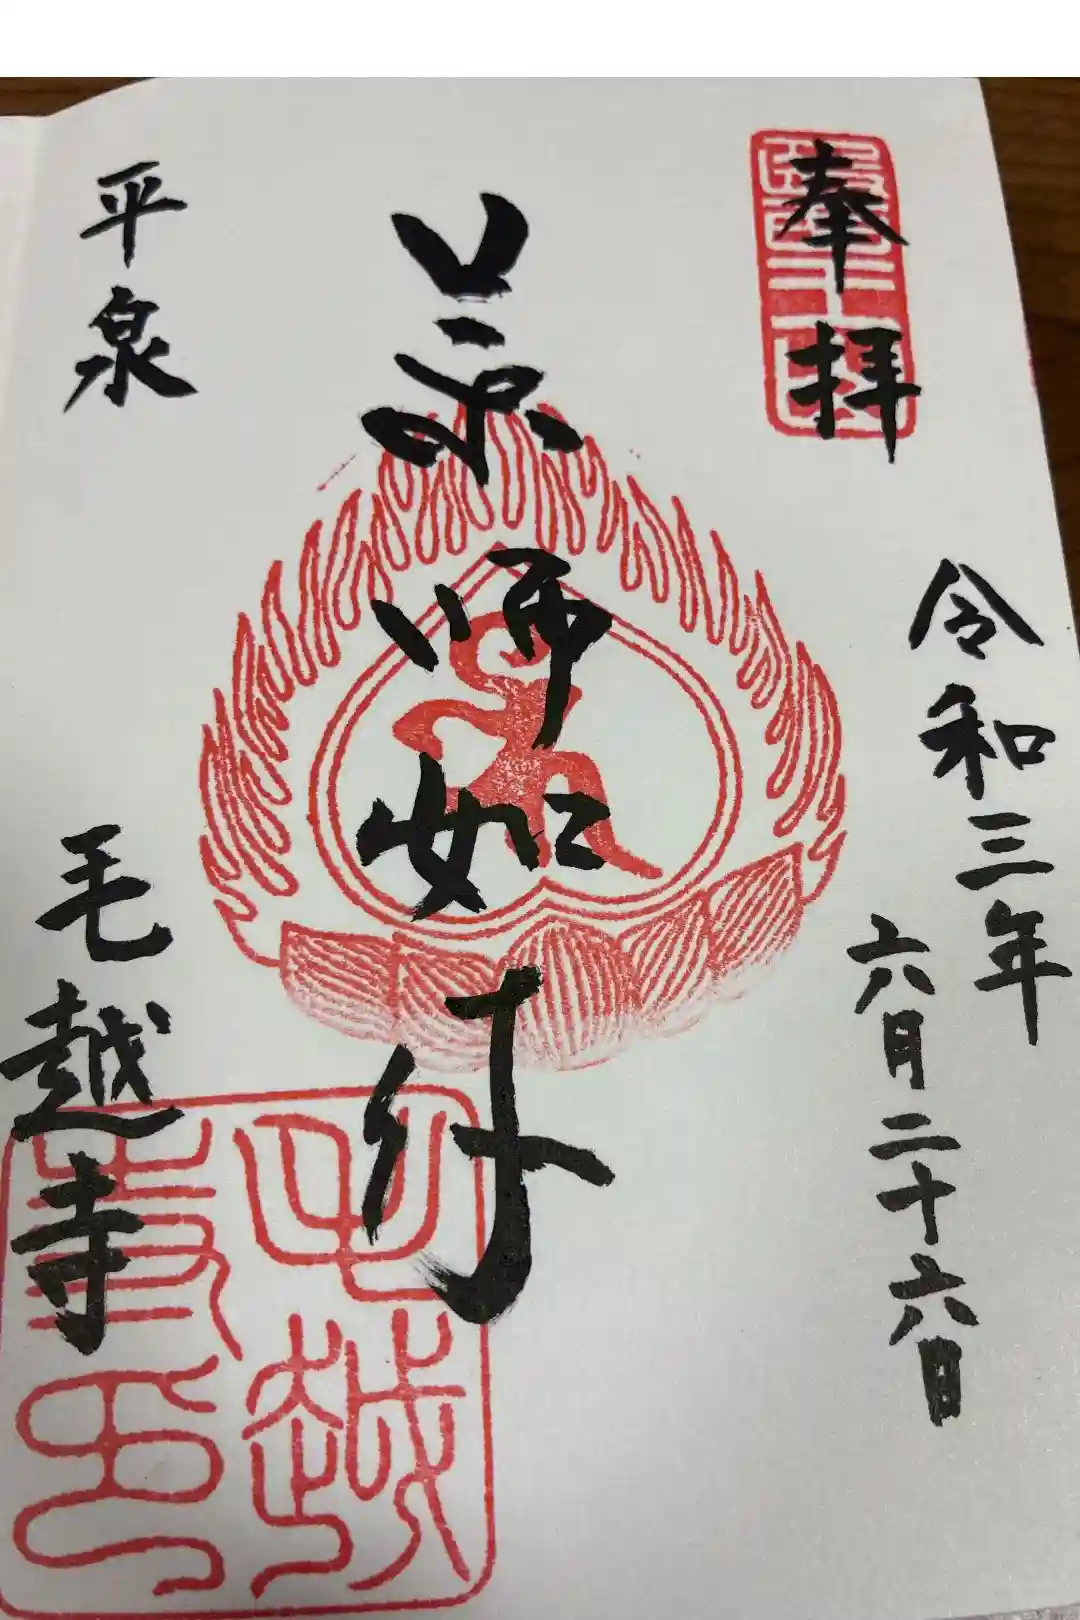 奉拝
令和三年
六月二十六日
薬師如来
平泉
毛越寺
毛越
寺印